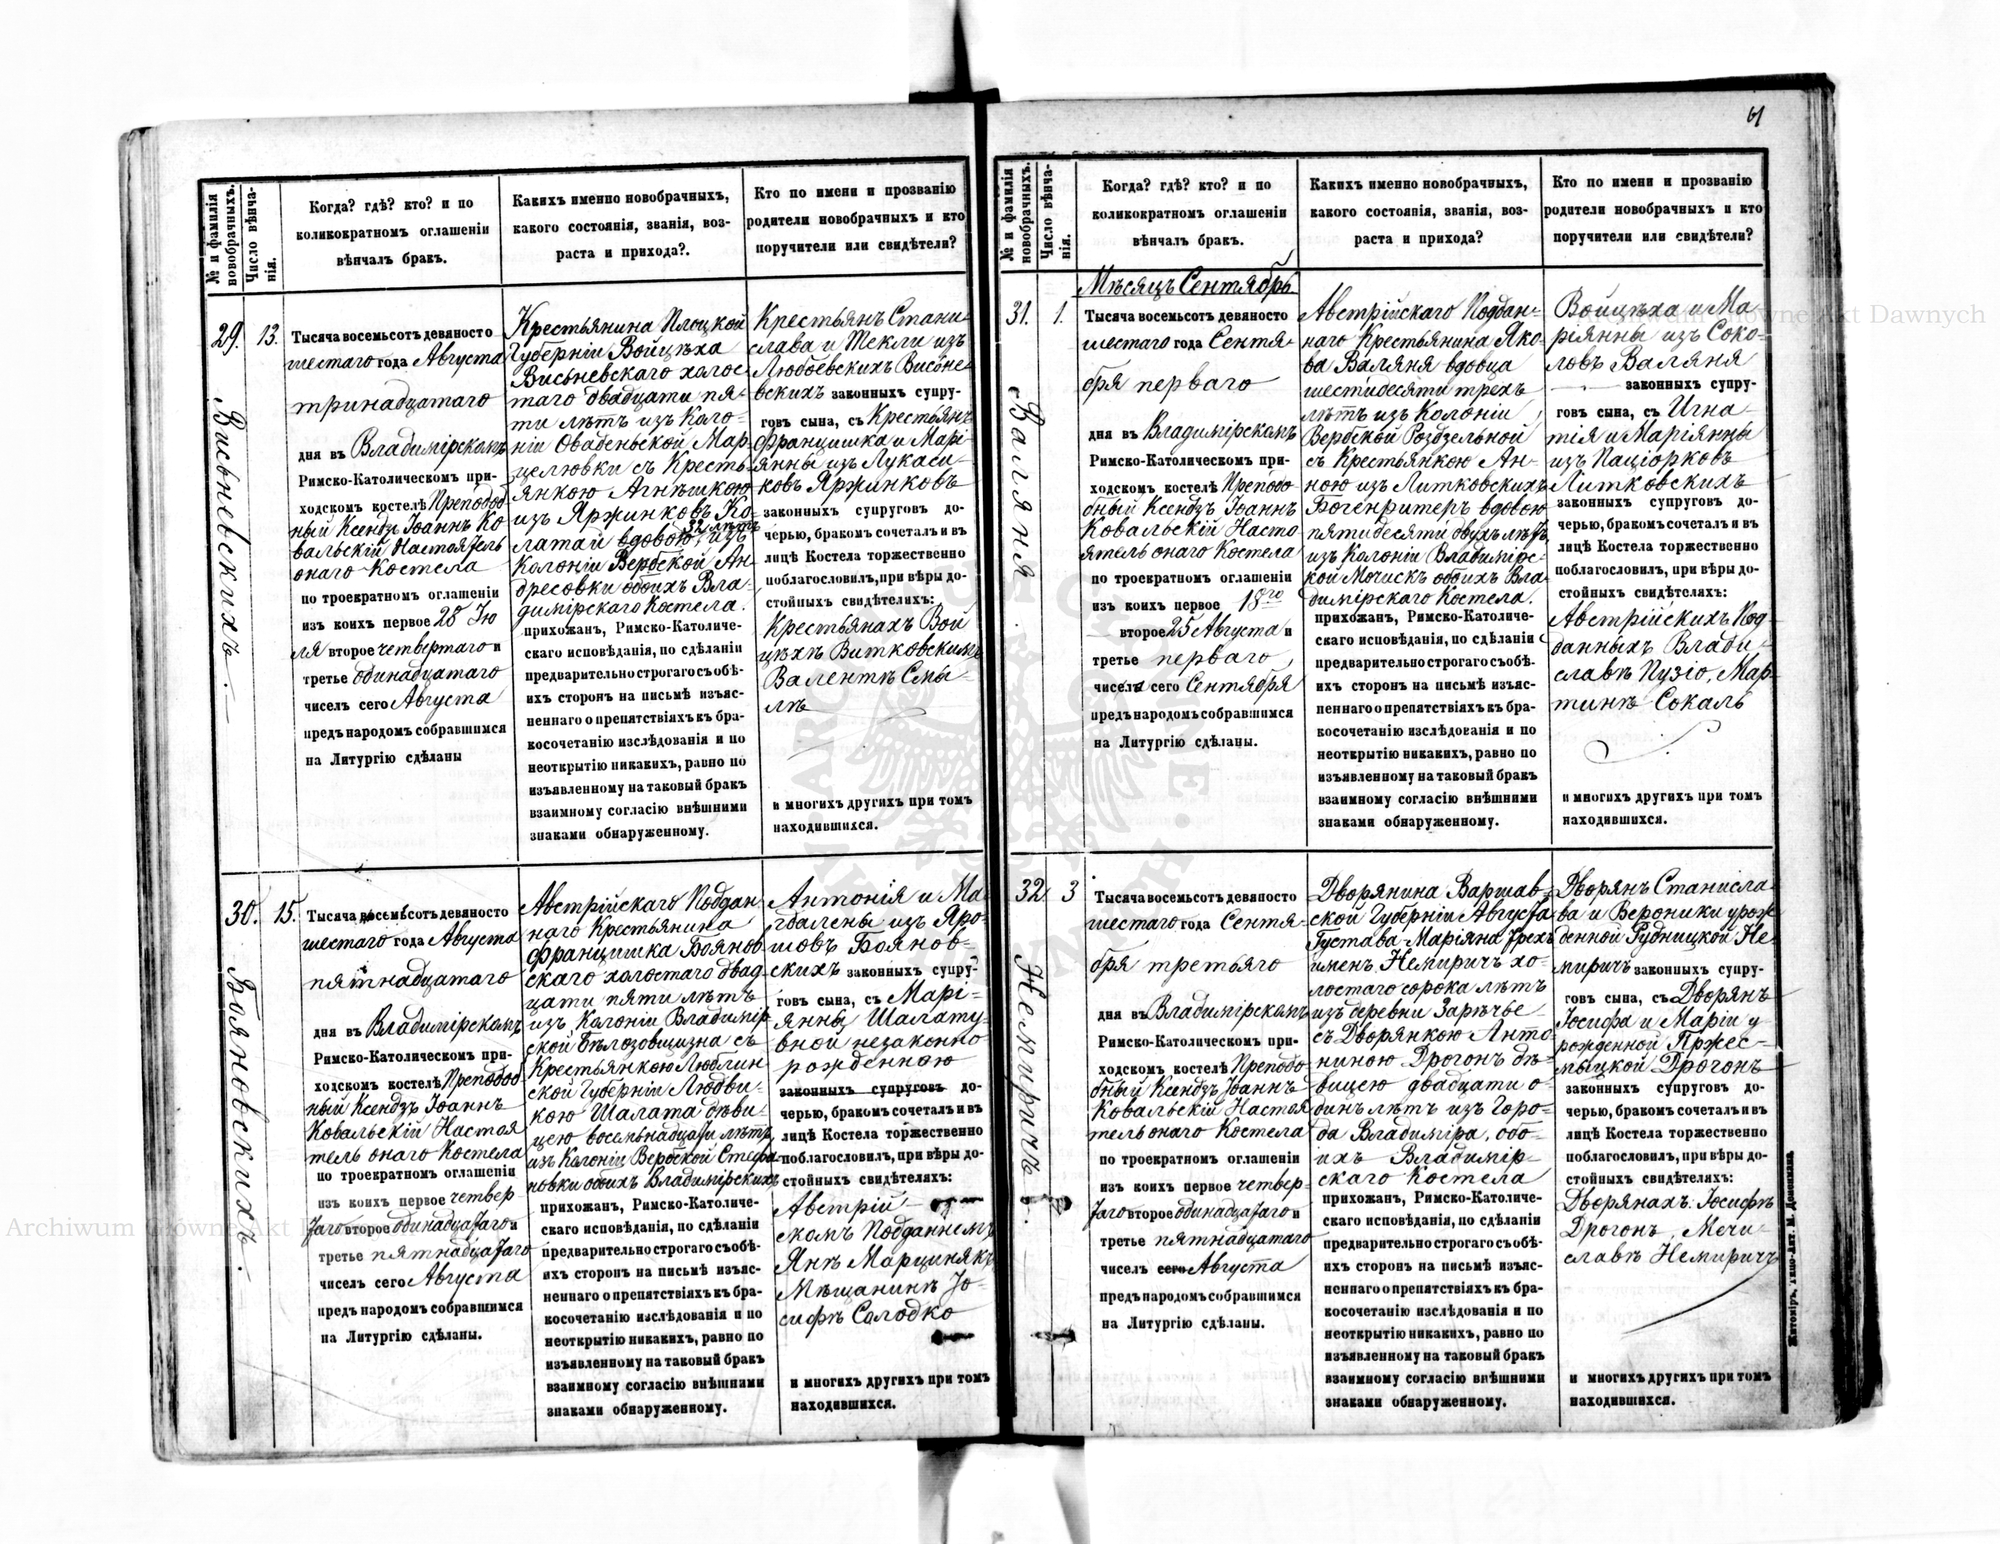 61
№ и фамилія новобрачныхъ.
Число вѣнчанія.
Когда? гдѣ? кто? и по
коликократномъ оглашеніи
вѣнчалъ бракъ.
Какихъ именно новобрачныхъ,
какого состоянія, званія, воз-
раста и прихода?.
Кто по имени и прозванію
родители новобрачныхъ и кто
поручители или свидѣтели?
29.
Висьневскихъ.
13.
Тысяча восемьсотъ девяносто
шестаго года Августа
тринадцатаго
дня въ Владимірскомъ
Римско-Католическомъ при-
ходскомъ костелѣ Преподоб
ный Ксендзъ Іоаннъ Ко
вальскій Настоятель
онаго Костела
по троекратномъ оглашеніи
изъ коихъ первое 28 Ію
ля второе четвертаго и
третье одинадцатаго
чиселъ сего Августа
предъ народомъ собравшимся
на Литургію сдѣланы
Крестьянина Плоцкой
Губерніи Войцѣха
Висьневскаго холос
таго двадцати пя-
ти лѣтъ изъ Коло-
ніи Оваденьской Мар
целювки съ Кресть-
янкою Агнѣшкою
изъ Яржинковъ Ко-
32 лѣтъ
латай вдовою, изъ
Колоніи Вербской Ан
дресовки обоихъ Вла-
димірскаго Костела.
прихожанъ, Римско-Католиче-
скаго исповѣданія, по сдѣланіи
предварительно строгаго съ обѣ-
ихъ сторонъ на письмѣ изъяс-
неннаго о препятствіяхъ къ бра-
косочетанію изслѣдованія и по
неоткрытію никакихъ, равно по
изъявленному на таковый бракъ
взаимному согласію внѣшними
знаками обнаруженному.
Крестьянъ Стани
слава и Текли изъ
Любоевскихъ Висьне
вскихъ законныхъ супру-
говъ сына, съ Крестьянъ
Францишка и Марі-
янны изъ Лукаси-
ковъ Яржинковъ
законныхъ супруговъ до-
черью, бракомъ сочеталъ и въ
лицѣ Костела торжественно
поблагословилъ, при вѣры до-
стойныхъ свидѣтеляхъ:
Крестьянахъ Вой
цѣхѣ Витковскимъ
Валентѣ Смы-
лѣ
и многихъ другихъ при томъ
находившихся.
30.
Бояновскихъ.
15.
Тысяча восемьсотъ девяносто
шестаго года Августа
пятнадцатаго
дня въ Владимірскомъ
Римско-Католическомъ при-
ходскомъ костелѣ Преподоб
ный Ксендзъ Іоаннъ
Ковальскій Настоя
тель онаго Костела
по троекратномъ оглашеніи
изъ коихъ первое четвер
таго второе одинадцатаго и
третье пятнадцатаго
чиселъ сего Августа
предъ народомъ собравшимся
на Литургію сдѣланы.
Австрійскаго Поддан
наго Крестьянина
Францишка Боянов
скаго холостаго двад
цати пяти лѣтъ
изъ Колоніи Владимір
ской Бѣлозовщизна съ
Крестьянкою Люблин
ской Губерніи Людви-
кою Шалата дѣви-
цею восемьнадцати лѣтъ
изъ Колоніи Вербской Стефа
новки обоихъ Владимірскихъ
прихожанъ, Римско-Католиче-
скаго исповѣданія, по сдѣланіи
предварительно строгаго съ обѣ-
ихъ сторонъ на письмѣ изъяс-
неннаго о препятствіяхъ къ бра-
косочетанію изслѣдованія и по
неоткрытію никакихъ, равно по
изъявленному на таковый бракъ
взаимному согласію внѣшними
знаками обнаруженному.
Антонія и Ма
гдалены изъ Яро-
шовъ Боянов-
скихъ законныхъ супру-
говъ сына, съ Марі-
янны Шалату-
вной незаконно
рожденною
законныхъ супруговъ до-
черью, бракомъ сочеталъ и въ
лицѣ Костела торжественно
поблагословилъ, при вѣры до-
стойныхъ свидѣтеляхъ:
Австрій-
скомъ Подданнемъ
Янѣ Марцинякъ
Мѣщанинѣ Іо-
сифѣ Солодко
и многихъ другихъ при томъ
находившихся.
№ и фамилія новобрачныхъ.
Число вѣнчанія.
Когда? гдѣ? кто? и по
коликократномъ оглашеніи
вѣнчалъ бракъ.
Какихъ именно новобрачныхъ,
какого состоянія, званія, воз-
раста и прихода?
Кто по имени и прозванію
родители новобрачныхъ и кто
поручители или свидѣтели?
Мѣсяцъ Сентябрь
31.
Валяня.
1.
Тысяча восемьсотъ девяносто
шестаго года Сентя-
бря перваго
дня въ Владимірскомъ
Римско-Католическомъ при-
ходскомъ костелѣ Преподо-
бный Ксендзъ Іоаннъ
Ковальскій Насто
ятель онаго Костела
по троекратномъ оглашеніи
изъ коихъ первое 18го
второе 25 Августа и
третье перваго
чиселъ сего Сентября
предъ народомъ собравшимся
на Литургію сдѣланы.
Австрійскаго Поддан-
наго Крестьянина Яко-
ва Валяня вдовца
шестидесяти трехъ
лѣтъ изъ Колоніи
Вербской Роздзельной
съ Крестьянкою Ан-
ною изъ Литковскихъ
Богенритеръ вдовою
пятидесяти двухъ лѣтъ
изъ Колоніи Владимірс-
кой Мочискъ обоихъ Вла
димірскаго Костела.
прихожанъ, Римско-Католиче-
скаго исповѣданія, по сдѣланіи
предварительно строгаго съ обѣ-
ихъ сторонъ на письмѣ изъяс-
неннаго о препятствіяхъ къ бра-
косочетанію изслѣдованія и по
неоткрытію никакихъ, равно по
изъявленному на таковый бракъ
взаимному согласію внѣшними
знаками обнаруженному.
Войцѣха и Ма-
ріянны изъ Соко-
ловъ Валяня
законныхъ супру-
говъ сына, съ Игна-
тія и Маріянны
изъ Паціорковъ
Литковскихъ
законныхъ супруговъ до-
черью, бракомъ сочеталъ и въ
лицѣ Костела торжественно
поблагословилъ, при вѣры до-
стойныхъ свидѣтеляхъ:
Австрійскихъ Под
данныхъ Влади-
славѣ Пузіо, Мар-
тинѣ Сокалъ
и многихъ другихъ при томъ
находившихся.
32
Немиричъ.
3
Тысяча восемьсотъ девяносто
шестаго года Сентя-
бря третьяго
дня въ Владимірскомъ
Римско-Католическомъ при-
ходскомъ костелѣ Преподо
бный Ксендзъ Іоаннъ
Ковальскій Настоя
тель онаго Костела
по троекратномъ оглашеніи
изъ коихъ первое четвер-
таго второе одинадцатаго и
третье пятнадцатаго
чиселъ сего Августа
предъ народомъ собравшимся
на Литургію сдѣланы.
Дворянина Варшав-
ской Губерніи Августа
Густава-Маріяна трехъ
именъ Немиричъ хо-
лостаго сорока лѣтъ
изъ деревни Зарѣчье
съ Дворянкою Анто-
ниною Дрогонъ дѣ-
вицею двадцати о-
динъ лѣтъ изъ Горо-
да Владиміра, обо-
ихъ Владимір-
скаго Костела
прихожанъ, Римско-Католиче-
скаго исповѣданія, по сдѣланіи
предварительно строгаго съ обѣ-
ихъ сторонъ на письмѣ изъяс-
неннаго о препятствіяхъ къ бра-
косочетанію изслѣдованія и по
неоткрытію никакихъ, равно по
изъявленному на таковый бракъ
взаимному согласію внѣшними
знаками обнаруженному.
Дворянъ Станисла
ва и Вероники урож
денной Рудницкой Не-
миричъ законныхъ супру-
говъ сына, съ Дворянъ
Іосифа и Маріи у-
рожденной Пржес-
мыцкой Дрогонъ
законныхъ супруговъ до-
черью, бракомъ сочеталъ и въ
лицѣ Костела торжественно
поблагословилъ, при вѣры до-
стойныхъ свидѣтеляхъ:
Дворянахъ: Іосифѣ
Дрогонъ, Мечи-
славѣ Немиричъ
и многихъ другихъ при томъ
находившихся.
Житоміръ, типо-лит. М. Дененмана.
Archiwum Główne Akt Dawnych
Archiwum Główne Akt Dawnych
ARCHIWUM GŁÓWNE